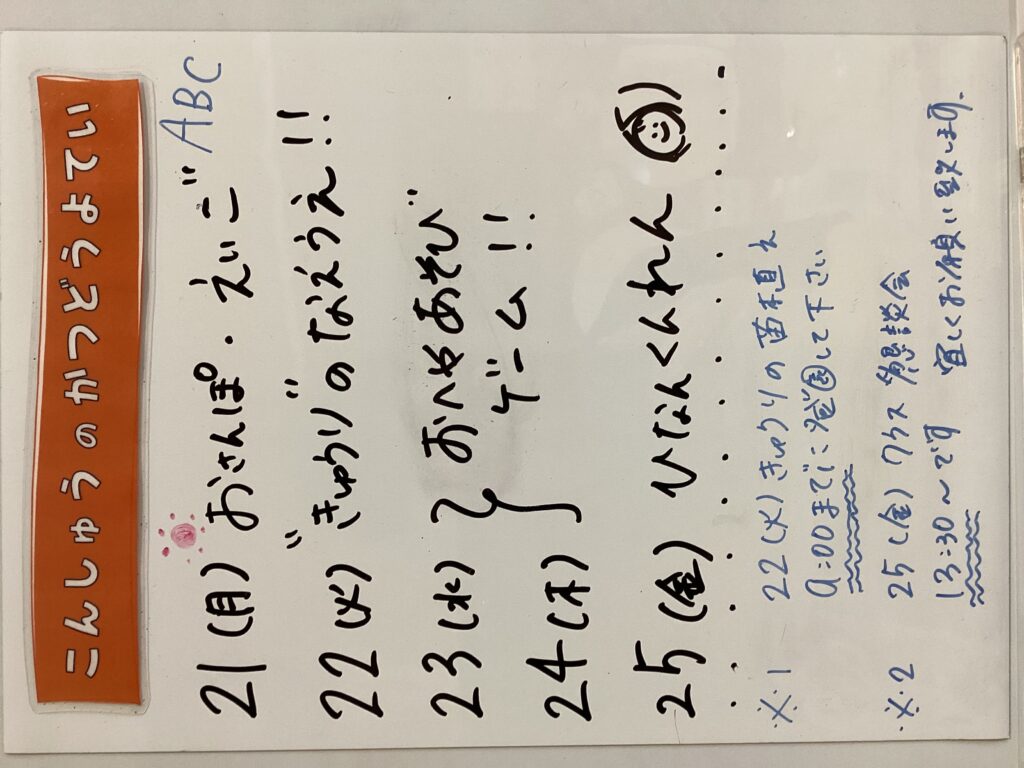 こんしゅうのかつどうよてい
21(月) おさんぽ・えいご ABC
22(火) "きゅうり"のなえうえ!!
23(水) おへやあそび
24(木) ゲーム!!
25(金) ひなんくんれん
※1 22(火)きゅうりの苗植え
9:00までに登園して下さい
※2 25(金) クラス懇談会
13:30〜です 宜しくお願い致します.